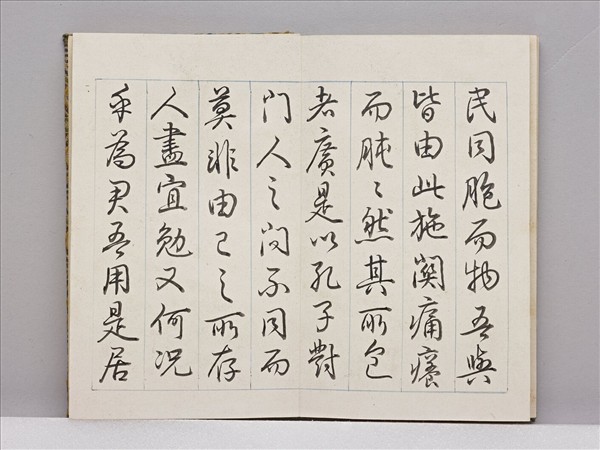 民同胞而物吾與
皆由此施關痛癢
而肫〻然其所包
者廣是以孔子對
門人之問不同而
莫非由己之所存
人盡宜勉又何況
乎為君吾用是居